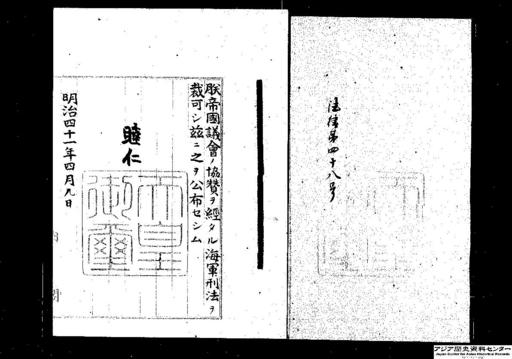 法律第四十八号
朕帝國議會ノ協贊ヲ經タル海軍刑法ヲ
裁可シ茲ニ之ヲ公布セシム
睦仁
天皇
御璽
明治四十一年四月九日
アジア歴史資料センター
Japan Center for Asian Historical Records